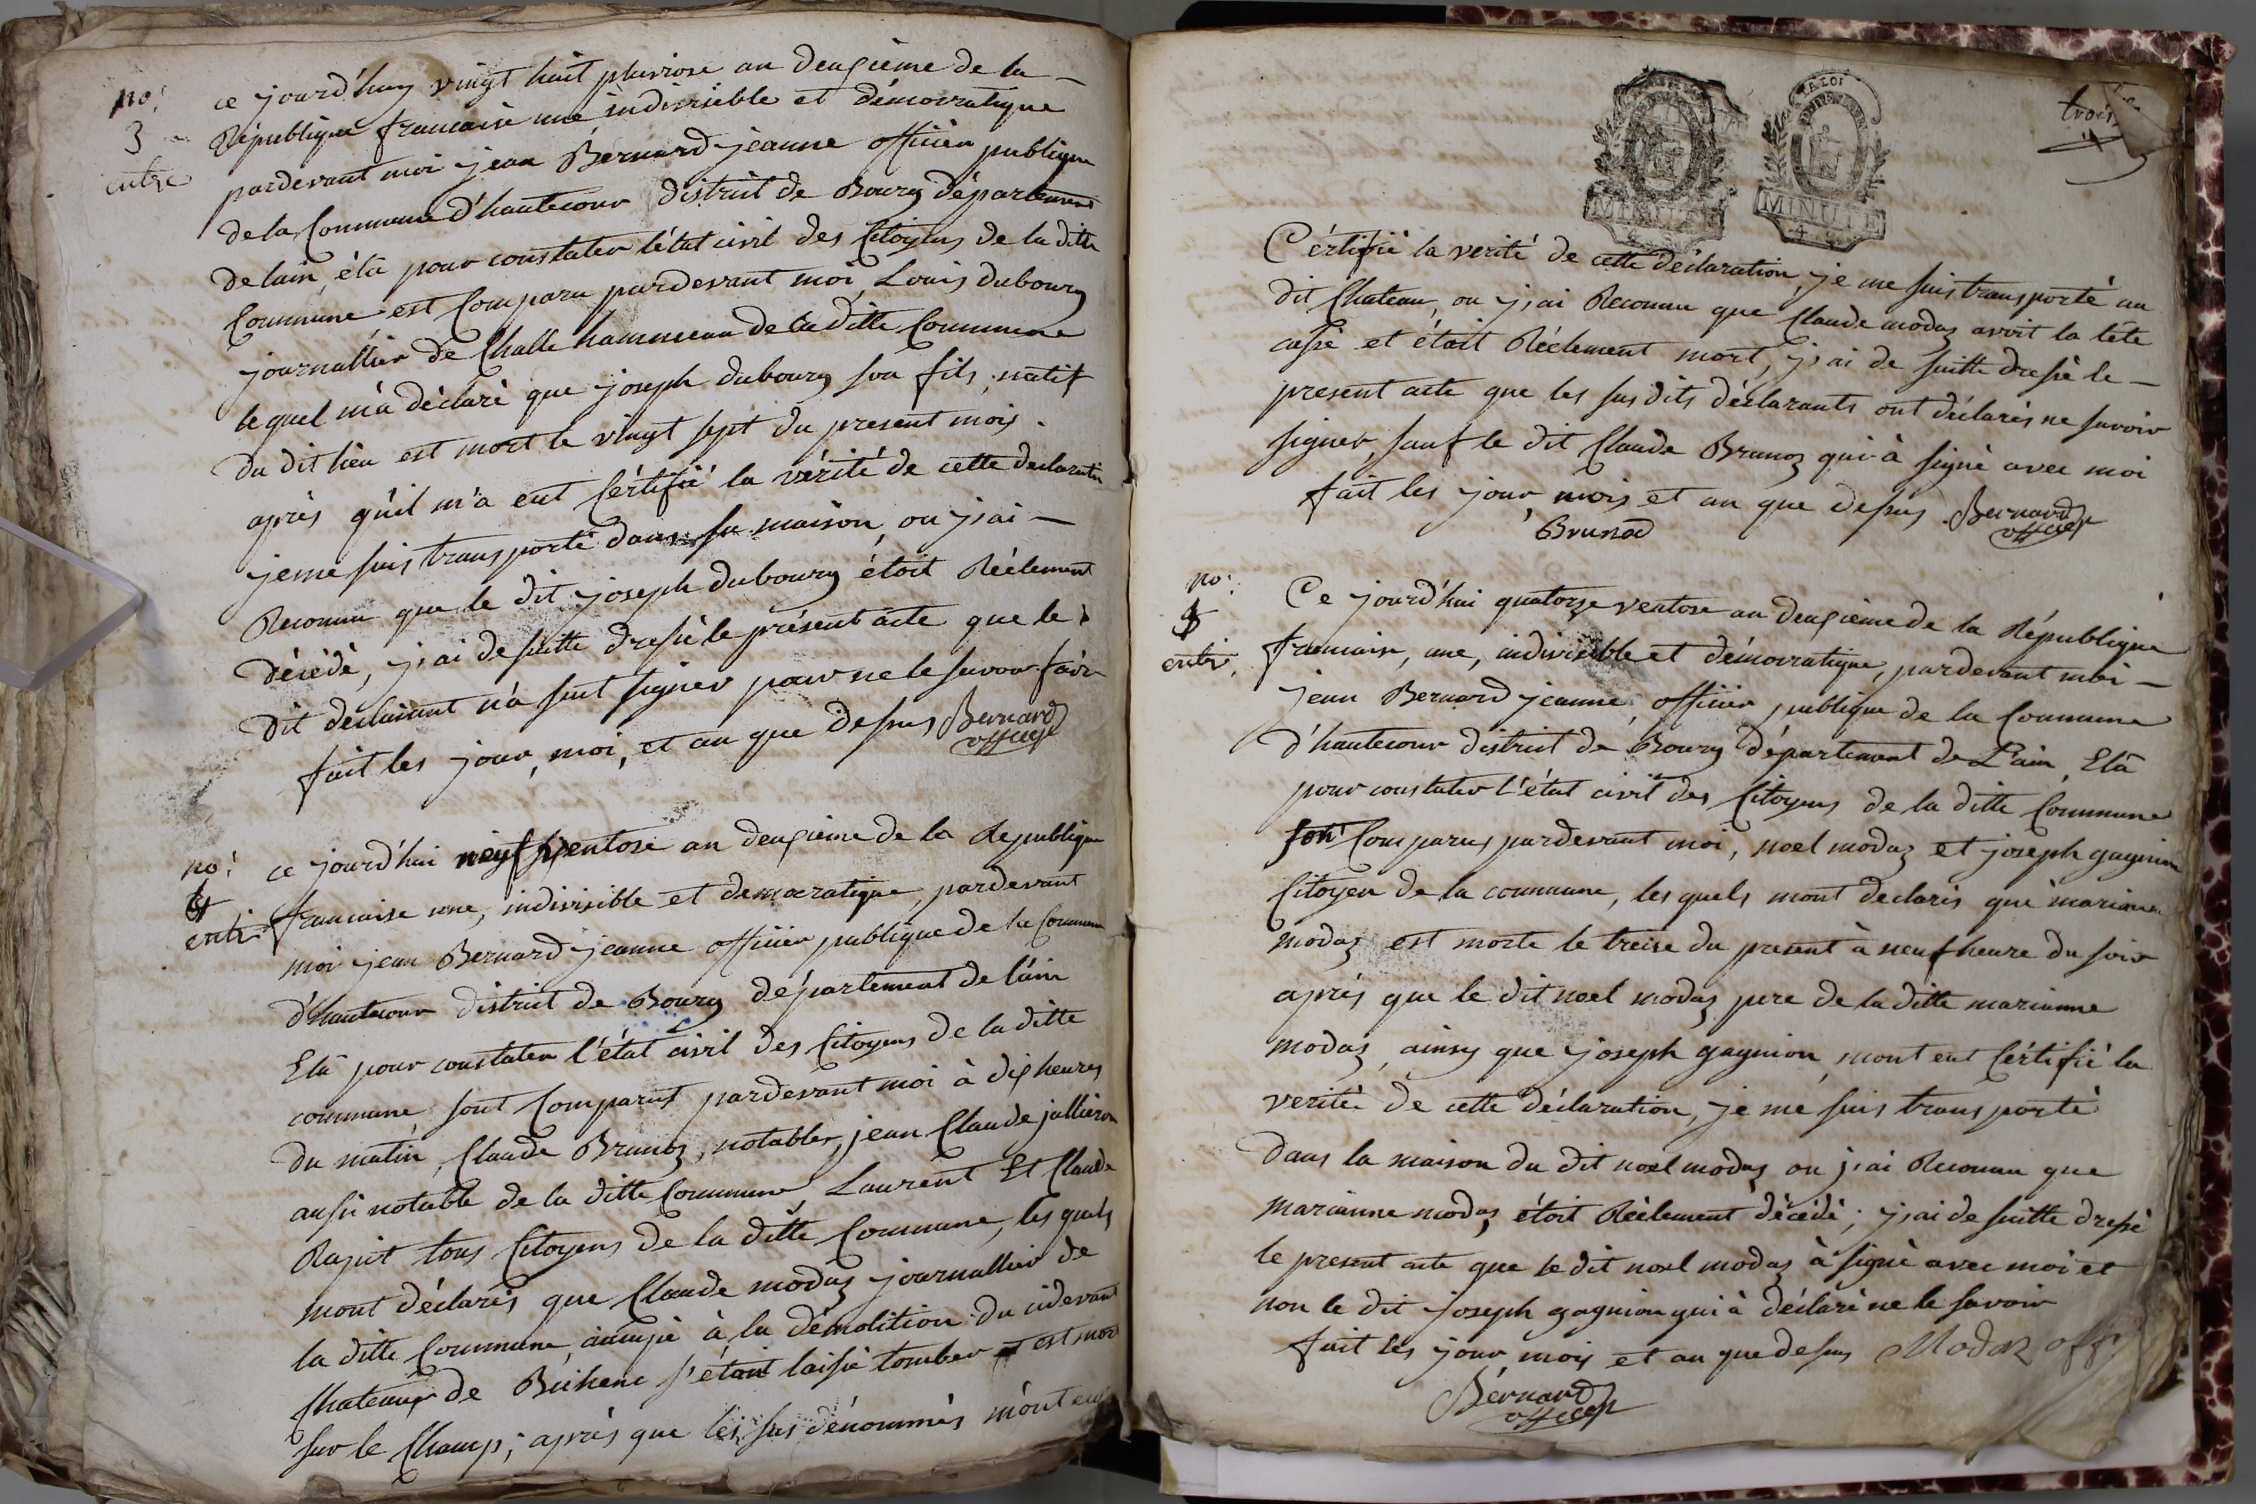 no:
3
entre
ce jourd'huy vingt huit pluviose an deuxième de la
République francaise une indivisible et démocratique
pardevant moi jean Bernard jeanne officier publique
de la Commune d'hautecour district de Bourg département
de lain, élu pour constater l'état civil des Citoyens de la ditte
Commune est Comparu pardevant moi, Louis dubourg
journallier de Challe hammeau de la ditte Commune
le quel m'a déclaré que joseph dubourg son fils, natif
du dit lieu est mort le vingt sept du present mois.
après qu'il m'a eut Cértifié la vérité de cette declaration
je me suis transporté dans sa maison, ou j'ai
Reconnu que le dit joseph dubourg étoit Réélement
décédé, j'ai de suitte dressé le présent acte que le
dit declarant n'a sut signer pour ne le savoir faire
fait les jour, moi, et an que dessus Bernard
officier
no:
entre
ce jourd'hui neuf ventose an deuxième de la Republique
francaise une, indivisible et democratique, pardevant
moi jean Bernard jeanne officier publique de la Commune
d'hautecour district de Bourg département de l'ain
Elu pour constater l'état civil des Citoyens de la ditte
commune, sont Comparus pardevant moi à dix heures
du matin, Claude Brunoz, notable, jean Claude jullieron
aussi notable de la ditte Commune, Laurent Et Claude
tous Citoyens de la ditte Commune, les quels
mont déclarés que Claude modaz journallier de
la ditte Commune, à la démolition du cidevant
Chateaux de Buhenc s'étoit laissé tomber et est mort
sur le Champ; après que les sus dénommés m'ont eut
trois
LA LOI
MINUTE
MINUTE
Cértifié la verité de cette déclaration, je me suis transporté au
dit Chateau, ou j'ai Reconnu que Claude modaz avoit la tête
cassé et étoit Réélement mort, j'ai de suitte dressé le
present acte que les sus dits déclarants ont déclarés ne savoir
signer, sauf le dit Claude Brunoz qui à signé avec moi
fait les jour, mois et an que dessus Bernard
officier
Brunod
no:
entre
Ce jourd'hui quatorze ventose an deuxième de la République
francaise, une, indivisible et démocratique, pardevant moi
jean Bernard jeanne, officier publique de la Commune
d'hautecour district de Bourg département de L'ain, Elu
pour constater l'état civil des Citoyens de la ditte Commune
sont Comparus pardevant moi, noel modaz et joseph gagnion
Citoyen de la commune, les quels mont declarés que marianne
modaz est morte le treise du present à neuf heure du soir
après que le dit noel modaz pere de la ditte marianne
modaz, ainsy que joseph gagnion, mont eut Cértifié la
verité de cette déclaration, je me suis transporté
dans la maison du dit noel modaz, ou j'ai Reconnu que
marianne modaz étoit Réélement décédé; j'ai de suitte dressé
le present acte que le dit noel modaz à signé avec moi et
non le dit joseph gagnion qui à déclaré ne le savoir
fait les jour, mois et an que dessus Modaz off
Bernard
officier